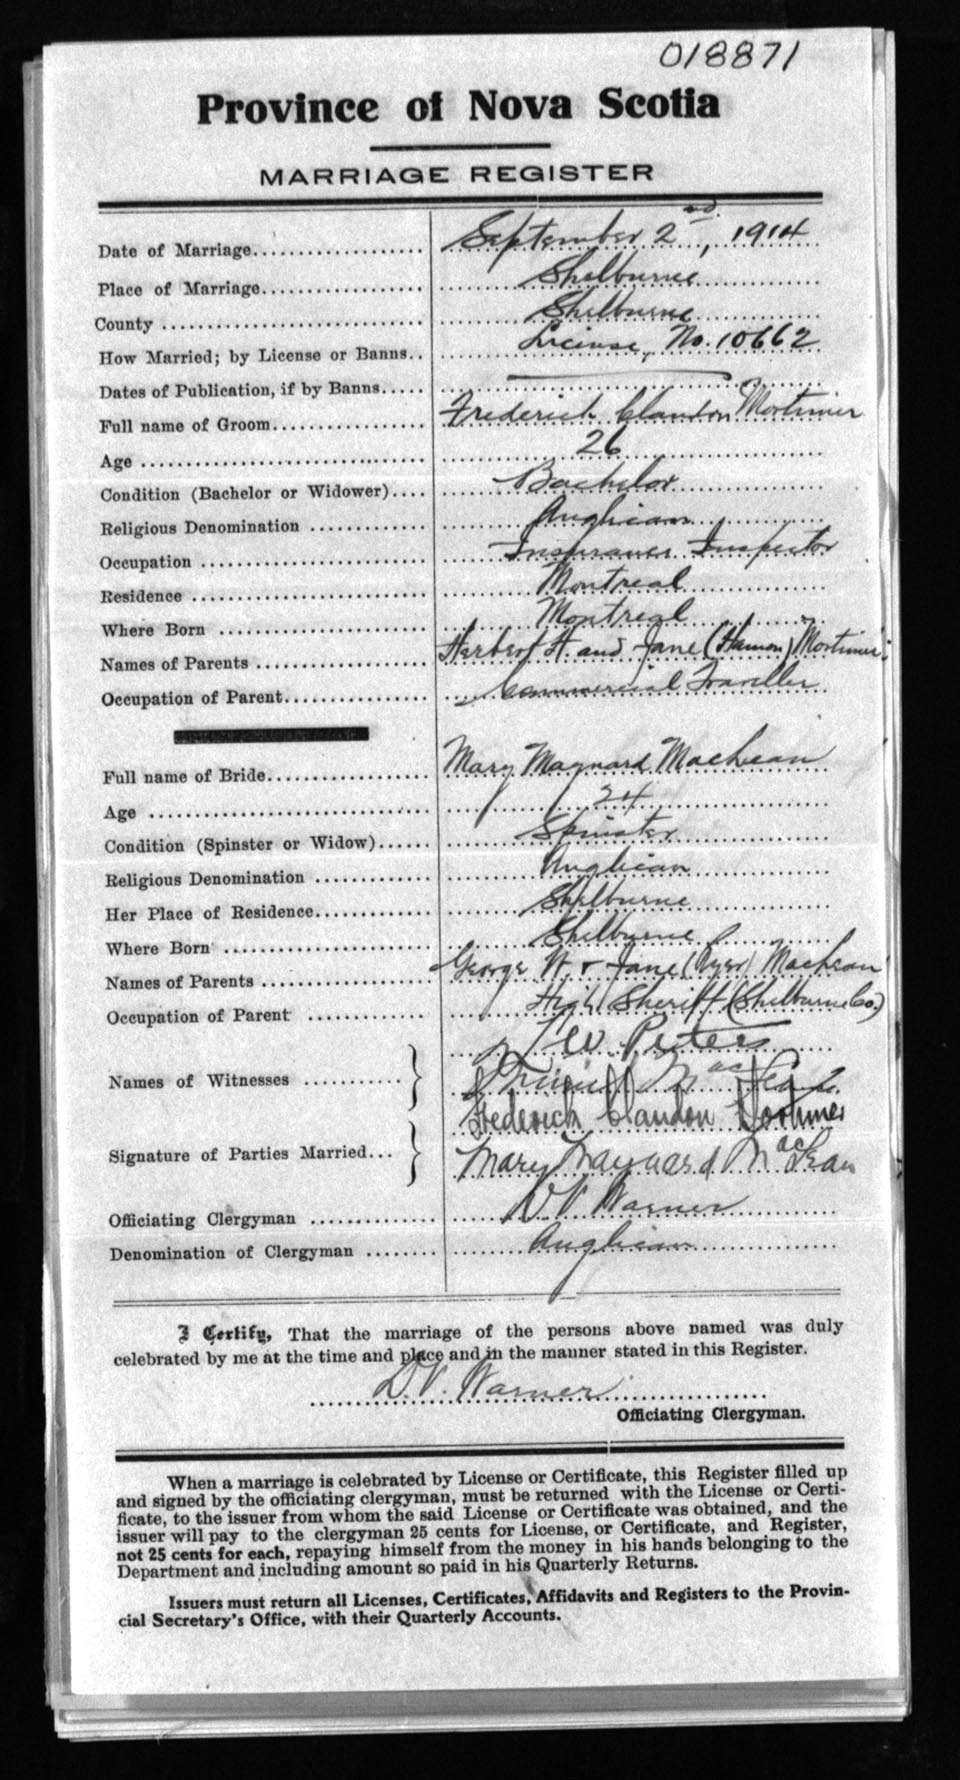 018871
Province of Nova Scotia
MARRIAGE REGISTER
Date of Marriage.................. September 2nd, 1914
Place of Marriage.................. Shelburne
County .................. Shelburne
How Married; by License or Banns.. License, No. 10662
Dates of Publication, if by Banns.....
Full name of Groom.................. Frederick Clandon Mortimer
Age .................. 26
Condition (Bachelor or Widower).... Bachelor
Religious Denomination .................. Anglican
Occupation .................. Insurance Inspector
Residence .................. Montreal
Where Born .................. Montreal
Names of Parents .................. Herbert H. and Jane (Hamon) Mortimer
Occupation of Parent.................. Commercial Traveller
Full name of Bride.................. Mary Maynard MacLean
Age .................. 24
Condition (Spinster or Widow)...... Spinster
Religious Denomination .................. Anglican
Her Place of Residence.................. Shelburne
Where Born .................. Shelburne
Names of Parents .................. George W. & Jane (Ryer) MacLean
Occupation of Parent .................. High Sheriff (Shelburne Co.)
Names of Witnesses .................. Peters
MacLean
Signature of Parties Married... Frederick Clandon Mortimer
Mary Maynard MacLean
Officiating Clergyman .................. D V. Warner
Denomination of Clergyman ........ Anglican
I Certify, That the marriage of the persons above named was duly
celebrated by me at the time and place and in the manner stated in this Register.
D. V. Warner
Officiating Clergyman.
When a marriage is celebrated by License or Certificate, this Register filled up
and signed by the officiating clergyman, must be returned with the License or Certi-
ficate, to the issuer from whom the said License or Certificate was obtained, and the
issuer will pay to the clergyman 25 cents for License, or Certificate, and Register,
not 25 cents for each, repaying himself from the money in his hands belonging to the
Department and including amount so paid in his Quarterly Returns.
Issuers must return all Licenses, Certificates, Affidavits and Registers to the Provin-
cial Secretary's Office, with their Quarterly Accounts.